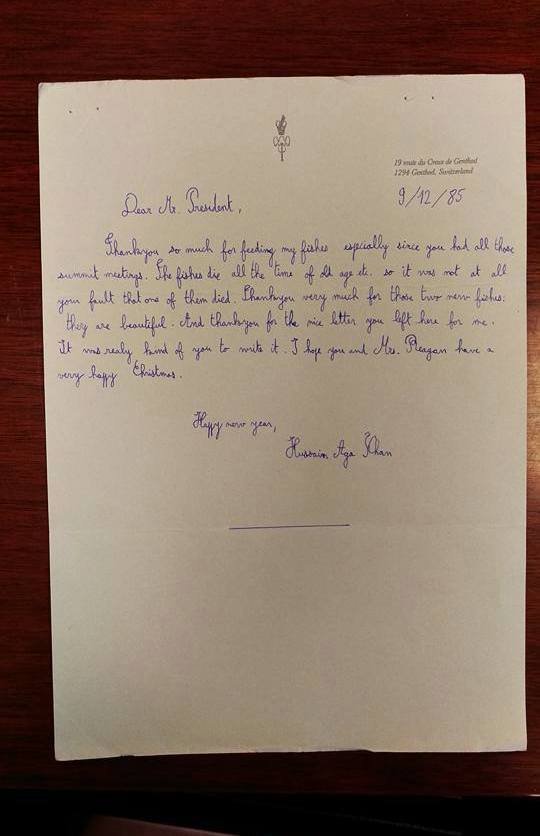 19 route du Creux de Genthod
1294 Genthod, Switzerland
9/12/85
Dear Mr. President,
Thankyou so much for feeding my fishes especially since you had all those
summit meetings. The fishes die all the time of old age etc. so it was not at all
your fault that one of them died. Thankyou very much for those two new fishes:
they are beautiful. And thankyou for the nice letter you left here for me.
It was realy kind of you to write it. I hope you and Mrs. Reagan have a
very happy Christmas.
Happy new year,
Hussain Aga Khan